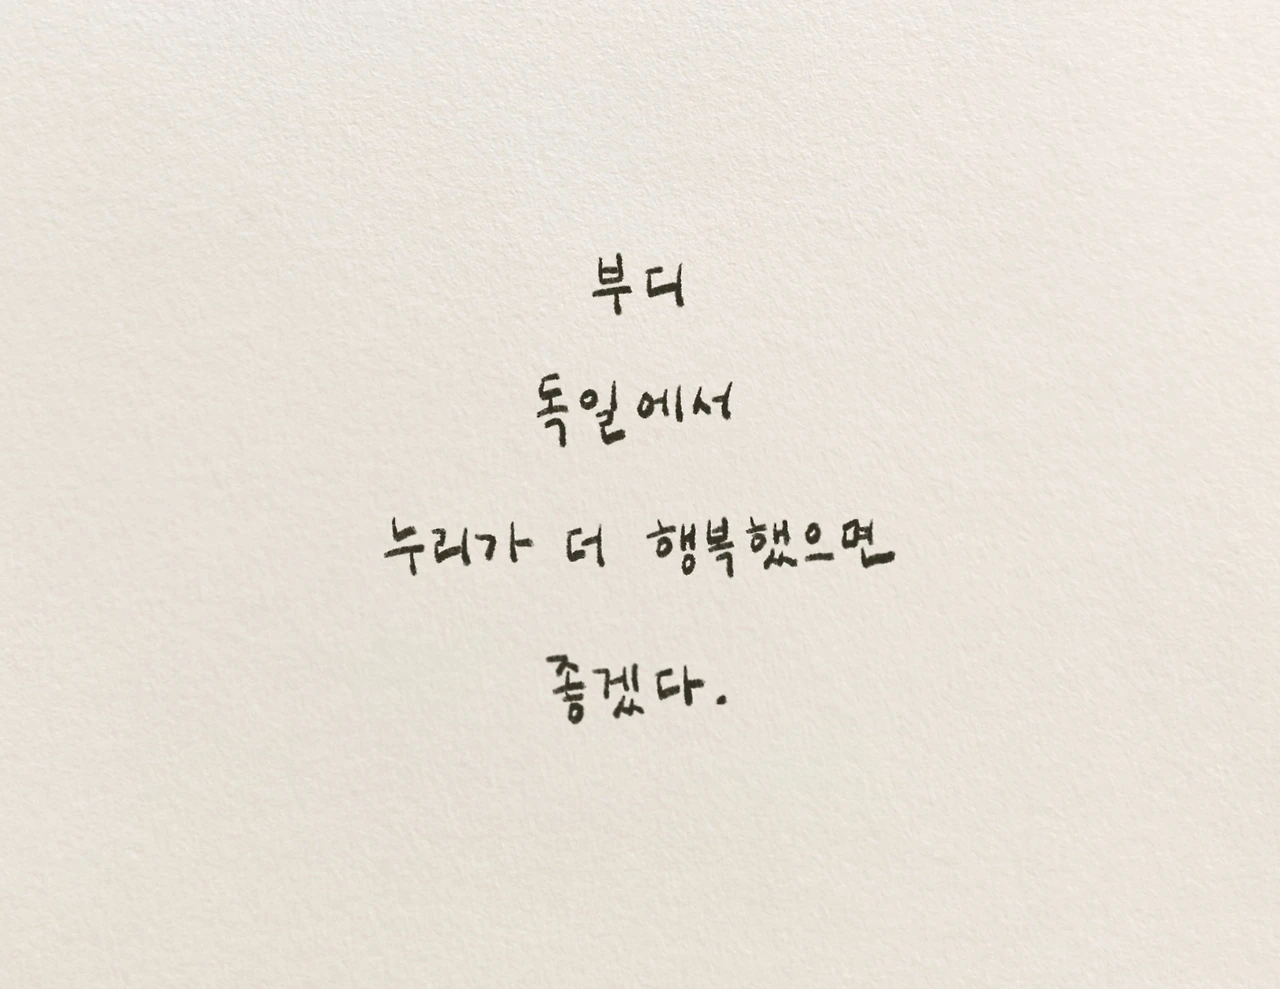 부디
독일에서
누리가 더 행복했으면
좋겠다.